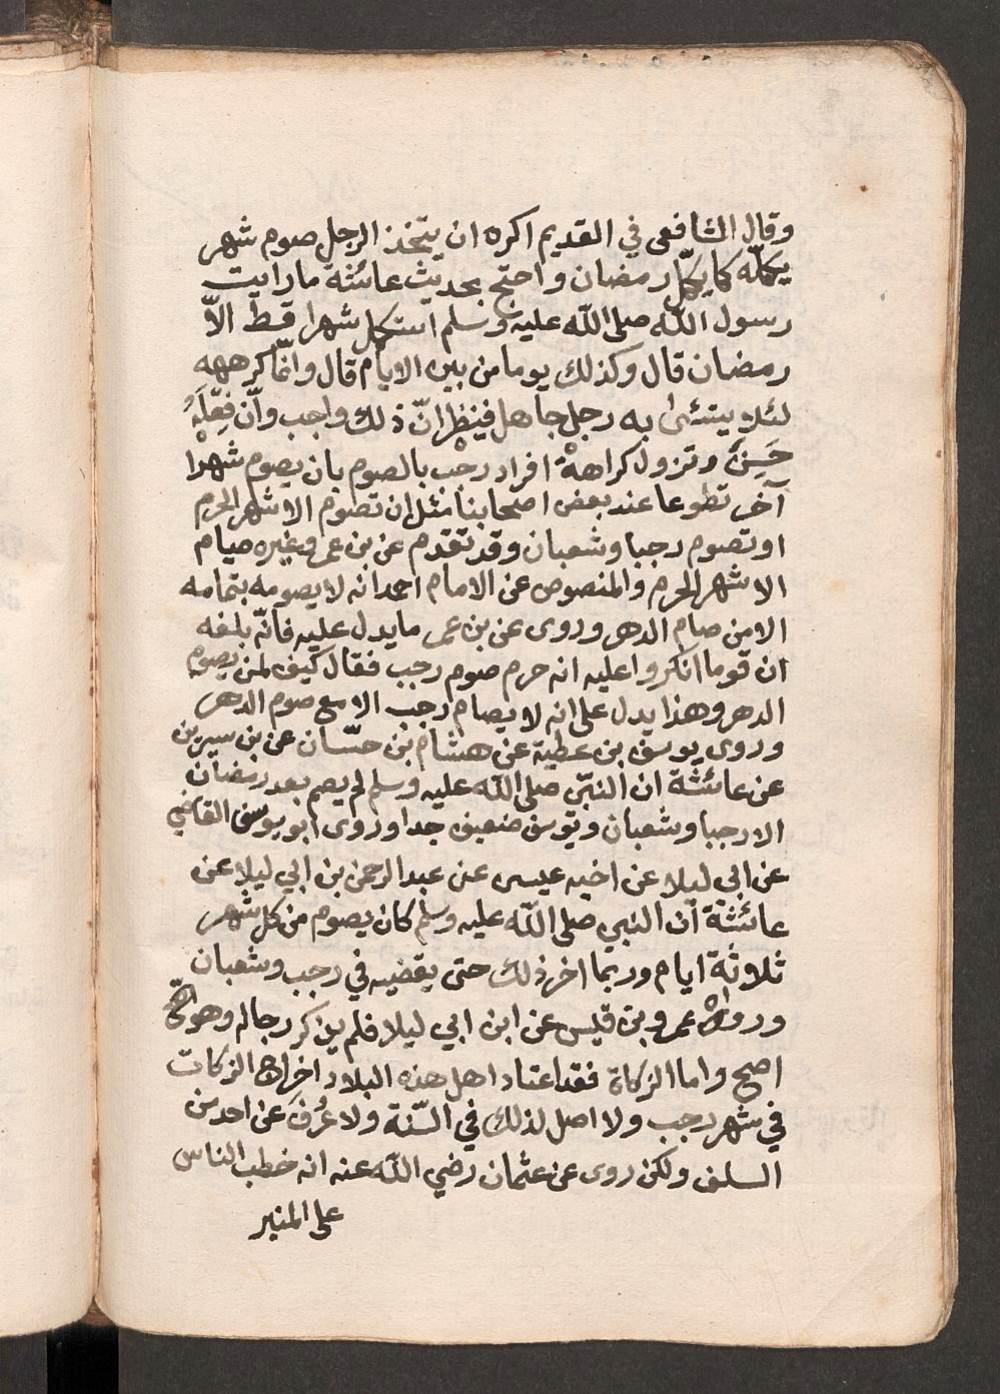 وقال الشافعى في القديم اكره ان يتخذ الرجل صوم شهر
يكمله كما يكمل رمضان واحتج بحديث عائشة ما رايت
رسول الله صلى الله عليه وسلم استكمل شهرا قط الّا
رمضان قال وكذلك يوما من بين الايام قال وانّما كرهه
لئلا يتسٔى به رجل جاهل فينظر انّ ذلك واجب وانّ فعله
حَسِنٌ وتزول كراهة افراد رجب بالصوم بان يصوم شهرا
آخر تطوعا عند بعض اصحابنا مثل ان تصوم الاشهر الحرم
او تصوم رجبا وشعبان وقد تقدم عن بن عمر وغيره صيام
الاشهر الحرم والمنصوص عن الامام احمد انه لا يصومه بتمامه
الا من صام الدهر وروى عن بن عمر ما يدل عليه فانّه بلغه
ان قوما انكروا عليه انه حرم صوم رجب فقال كيف لمن يصوم
الدهر وهذا يدل على انه لا يصام رجب الا مع صوم الدهر
وروى يوسف بن عطية عن هشام بن حسّان عن بن سيرين
عن عائشة ان النبّي صلى الله عليه وسلم لم يصم بعد رمضان
الا رجبا وشعبان ويوسف ضعيف جدا وروى ابو يوسف القاضي
عن ابى ليلا عن اخيه عيسى عن عبد الرحمن بن ابي ليلا عن
عائشة ان النبي صلى الله عليه وسلم كان يصوم من كل شهر
ثلاثة ايام وربما اخر ذلك حتى يقضيه في رجب وشعبان
ورواه عمرو بن قيس عن ابن ابي ليلا فلم يذكر رجا له وهو
اصح واما الزكاة فقد اعتاد اهل هذه البلاد اخراج الزكات
في شهر رجب ولا اصل لذلك في السّنة ولا عُرفَ عن احد من
السلف ولكن روى عن عثمان رضي الله عنه انه خطب الناس
على المنبر